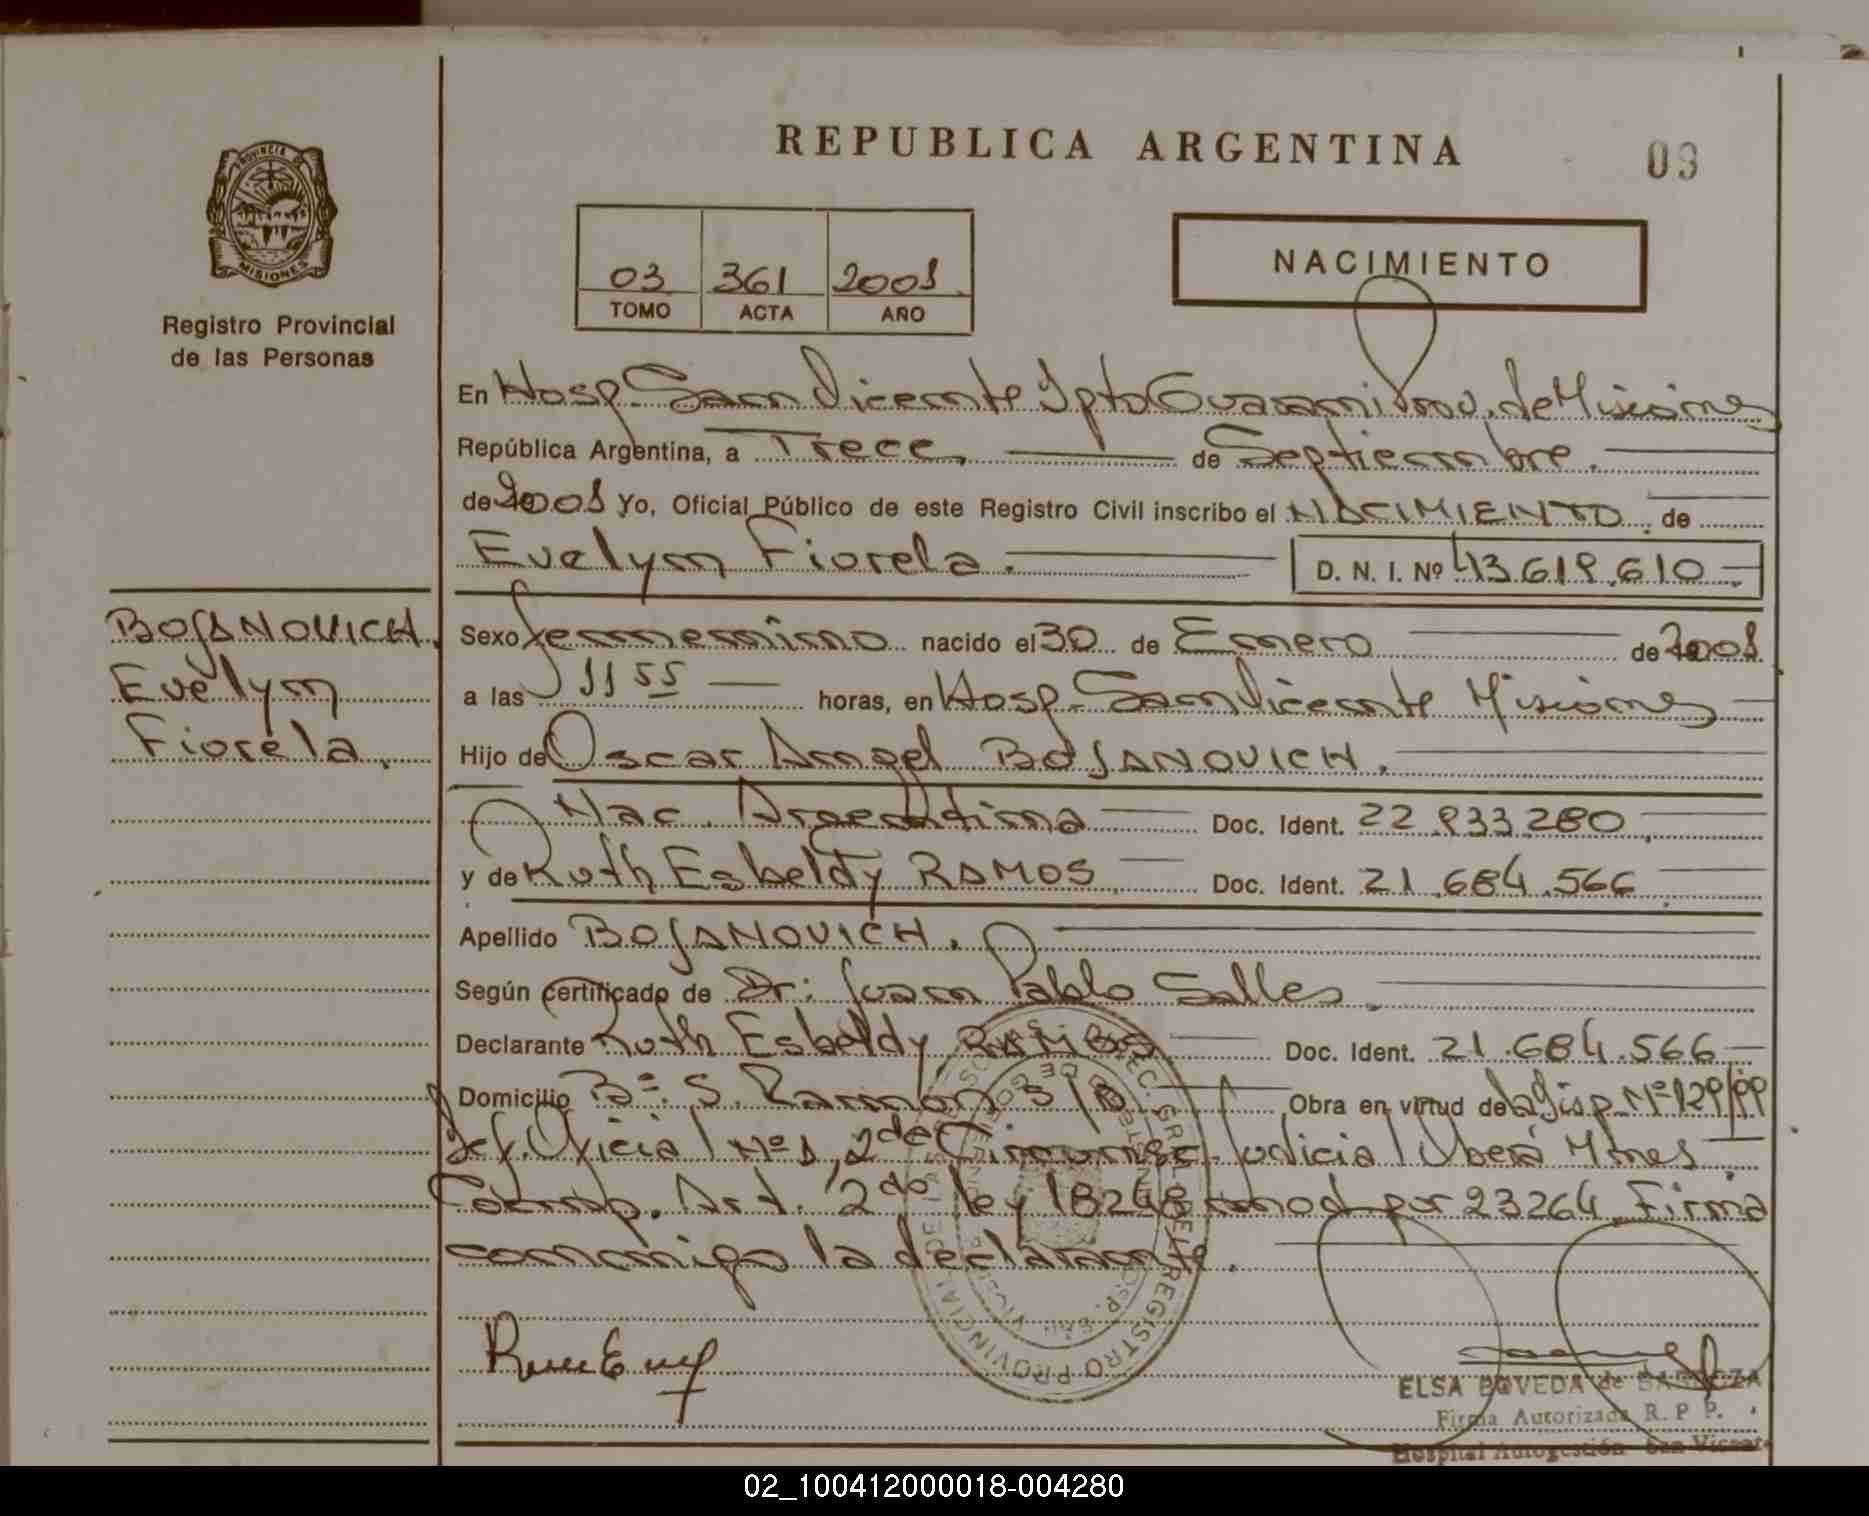 REPUBLICA ARGENTINA
03
PROVINCIA DE MISIONES
Registro Provincial
de las Personas
03 361 2001
TOMO ACTA AÑO
NACIMIENTO
En Hosp. San Vicente Dpto Guarani Prov. de Misiones
República Argentina, a Trece de Septiembre.
de 2001 Yo, Oficial Público de este Registro Civil inscribo el NACIMIENTO de
Evelyn Fiorela. D. N. I. Nº 43.619.610
BOJANOVICH
Evelyn
Fiorela.
Sexo femenino nacido el 30 de Enero de 2001
a las 11 55 horas, en Hosp. San Vicente Misiones
Hijo de Oscar Angel BOJANOVICH.
Nac. Argentina Doc. Ident. 22.833.280
y de Ruth Esbeldy RAMOS Doc. Ident. 21.684.566
Apellido BOJANOVICH.
Según certificado de Dr: Juan Pablo Salles
Declarante Ruth Esbeldy RAMOS Doc. Ident. 21.684.566
Domicilio Bº. S. Ramon S/N Obra en virtud de la Disp. Nº 129/99
Def. Oficial Nº 1, 2da Circunsc. Judicial Oberá Mnes.
Comp. Art. 2do ley 18248 mod por 23264. Firma
conmigo la declarante.
REGISTRO PROVINCIAL DE LAS
ELSA BOVEDA de BARBOZA
Firma Autorizada R. P P.
Hospital Autogestión San Vicente
02_100412000018-004280